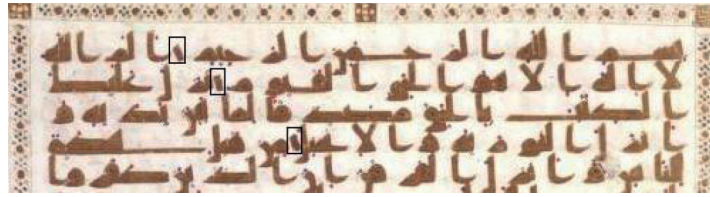 بسم الله الرحمن الرحيم الم الله
لا اله الا هو الحي القيوم نزل عليك
الكتب بالحق مصدقا لما بين يديه و
انزل التورية والانجيل من قبل هدى
للناس وانزل الفرقان ان الذين كفروا